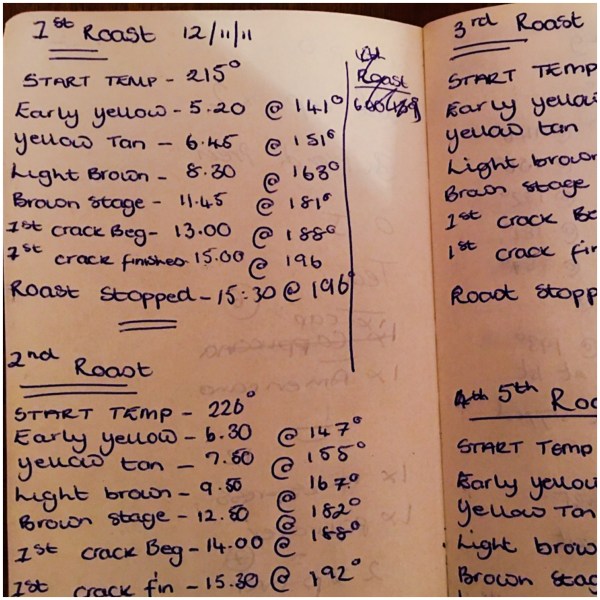 1st Roast 12/11/11
START TEMP - 215°
Early yellow - 5.20 @ 141°
Yellow Tan - 6.45 @ 151°
Light Brown - 8.30 @ 163°
Brown stage - 11.45 @ 181°
1st crack Beg - 13.00 @ 188°
1st crack finished 15.00 @ 196
Roast Stopped - 15:30 @ 196°
Roast
2nd Roast
START TEMP - 226°
Early yellow - 6.30 @ 147°
yellow tan - 7.50 @ 155°
Light brown - 9.50 @ 167°
Brown stage - 12.50 @ 182°
1st crack Beg - 14.00 @ 188°
1st crack fin - 15.30 @ 192°
3rd Roast
START TEMP
Early yellow
yellow tan
Light brown
Brown stage
1st crack Be
1st crack fin
Roast Stopp
4th 5th Roa
START TEMP
Early yellow
Yellow Tan
Light brow
Brown stag